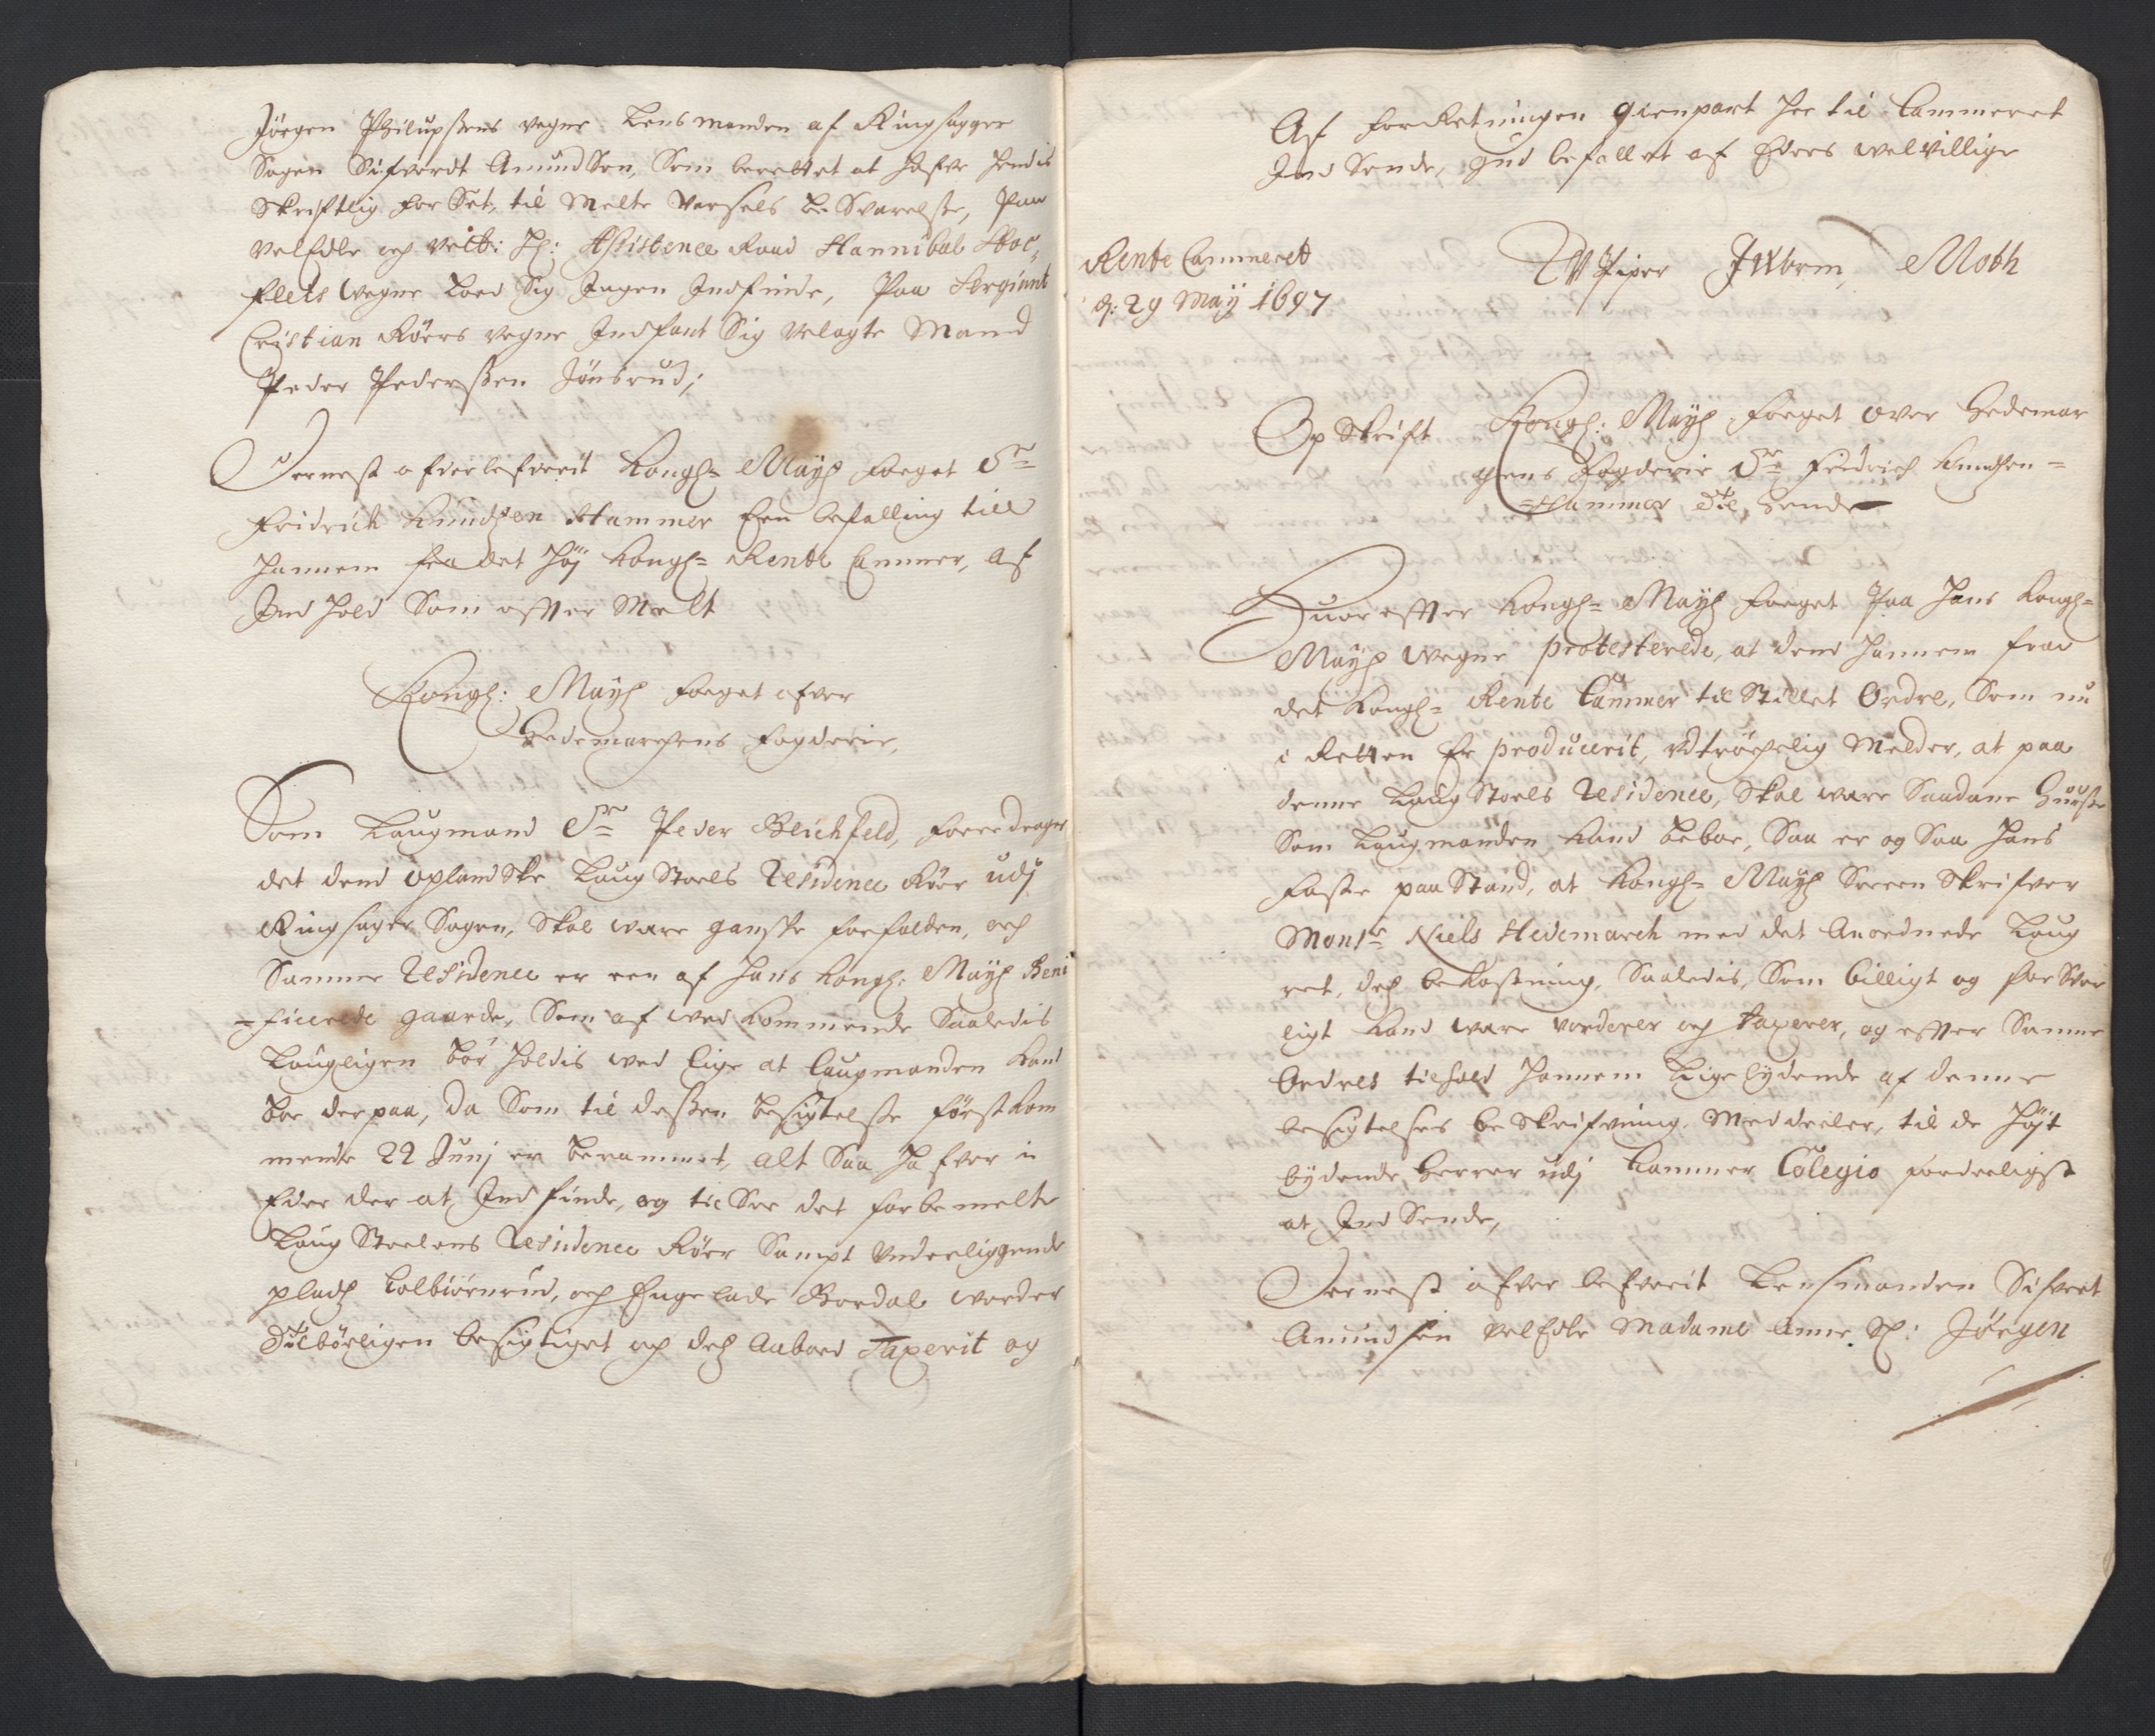 Jörgen Philupsens vegne Lensmanden af Ringsagger
Sogen Sifverdt AmundSen, Som berettet at Hafve hendis
Skriftlig forSet, til Melte Varsels beSvarelße, Paa
velEdle och velb: H: Assistence Raad Hannibal Stoc-
flets wegne Loed Sig Ingen Indfinde, Paa Sergiant
Cristian Röers vegne Indfant Sig velagte Mand
Peder Pederssen Jönsrud;
Dernest ofverlefverit Kongl= Mayts foeget Sr=
Fridrich Knudsen Hammer Een befalling till
hannem fra det Höj Kongl= Rente Cammer, af
Indhold Som effter Melt
Kongl: Mayts foeget ofver
Hedemarchens fogderie,
Som Laugmand Sr= Peder Bleichfeld, forredrager
det dend oplandske LaugStoels Residence Röer udj
Ringsager Sogen, Skal være ganske forfalden, och
Samme Residence er een af Hans Kongl: Mayts Beni
=ficerede gaarde, Som af wedkommende Saaledis
Laugligen bör holdis wed lige at laugmanden kand
boe derpaa, da Som til dessen besigtelße förstkom
mende 22 Junj er berammet, alt Saa hafver i
Eder der at Indfinde, og tilSee det forbemelte
LaugStoelens Residence Röer Sampt Underliggende
pladtz Colbiörnrud, och Engelade Bordal worder
Tilbörligen besigtiget och dets Aaboed Taxerit og
Af forRetningen gienpart her til Cammeret
IndSende, gud befallet af Eders welvillige
Rente Cammeret
d: 29 Maÿ 1697
W Piper JWbrm, Moth
OpSkrift Kongl: Mayts foeget over Hedemar
chens fogderie Sr= Fridrich Knudsen =
=Hammer Til Hende
Huoreffter Kongl= Mayts foeget Paa Hans Kongl=
Mayts wegne protesterede, at dend hannem fraa
det Kongl= Rente Cammer tilStillet Ordre, Som nu
i Retten Er producerit, udtröchelig Melder, at paa
denne LaugStoels Residence, Skal være Saadane Huuße
Som Laugmanden kand beboe, Saa er og Saa hans
faste paaStand, at Kongl= Mayts SorenSkrifver
Monsr Niels Hedemarch med det Anordnede Laug
ret, dets beKostning, Saaledis, Som billigt og forSvar
ligt kand være vorderer och taxerer, og effter Samme
Ordres tilhold hannem Ligelydende af denne
besigtelses beSkrifning, Meddeeler, til de höjt
bydende Herrer udj Cammer Colegio forderligst
at IndSende,
Dernest ofverlefverit Lensmanden Sifvert
Amundsen velEdle Madame Anne Sl: Jörgen